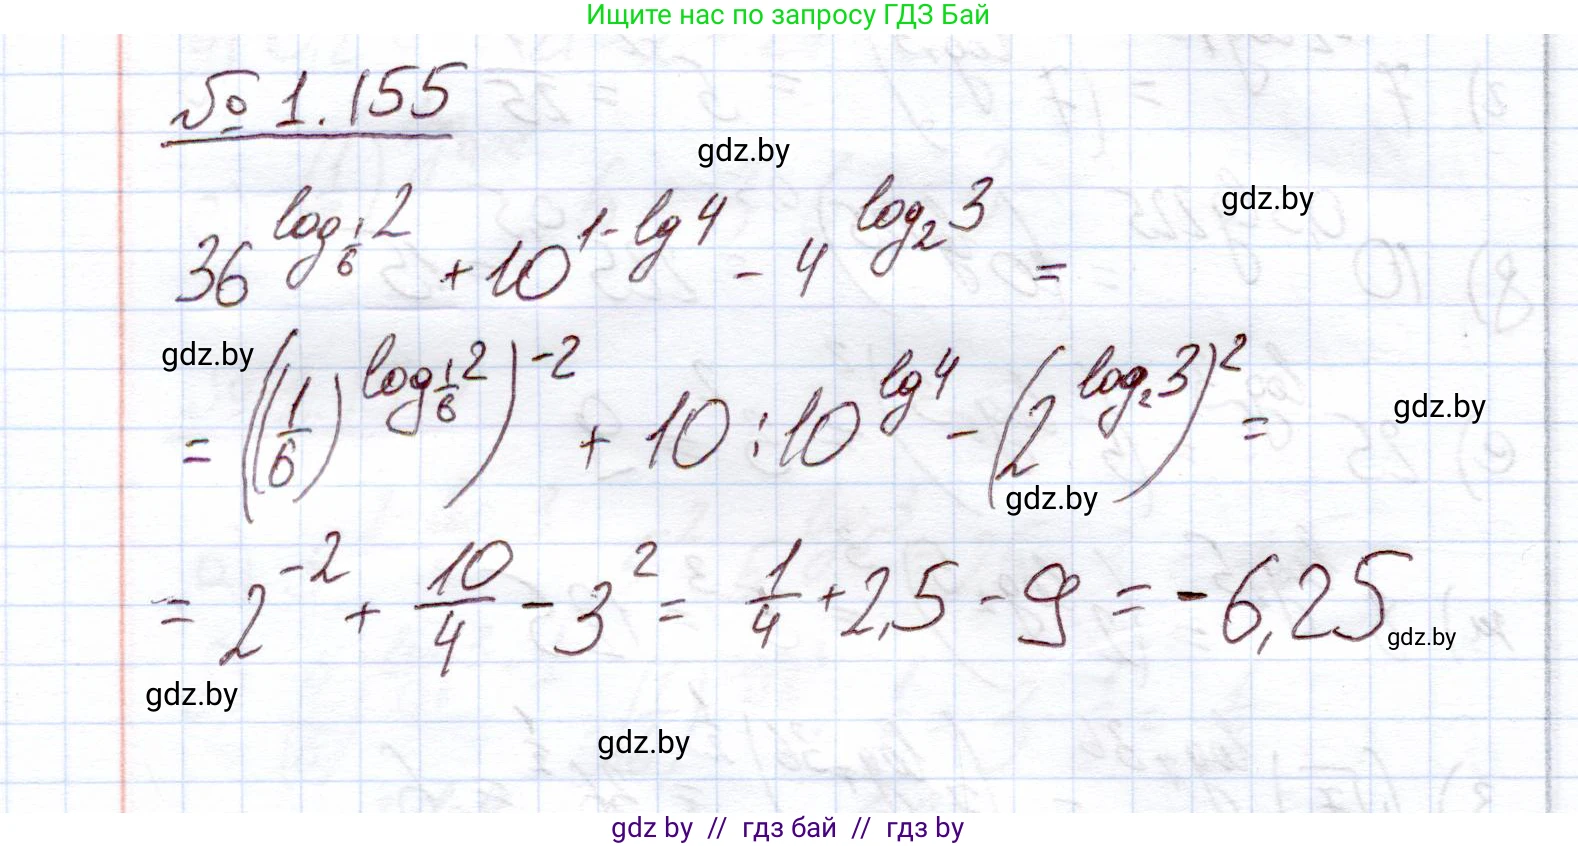 Ищите нас по запросу ГДЗ Бай
№ 1.155
gdz.by
gdz.by
36^(log_(1/6) 2) + 10^(1-lg 4) - 4^(log_2 3) =
gdz.by
= ((1/6)^(log_(1/6) 2))^(-2) + 10 : 10^(lg 4) - (2^(log_2 3))^2 =
gdz.by
gdz.by
= 2^(-2) + 10/4 - 3^2 = 1/4 + 2,5 - 9 = -6,25
gdz.by
gdz.by
gdz.by
gdz by // гдз бай // гдз by